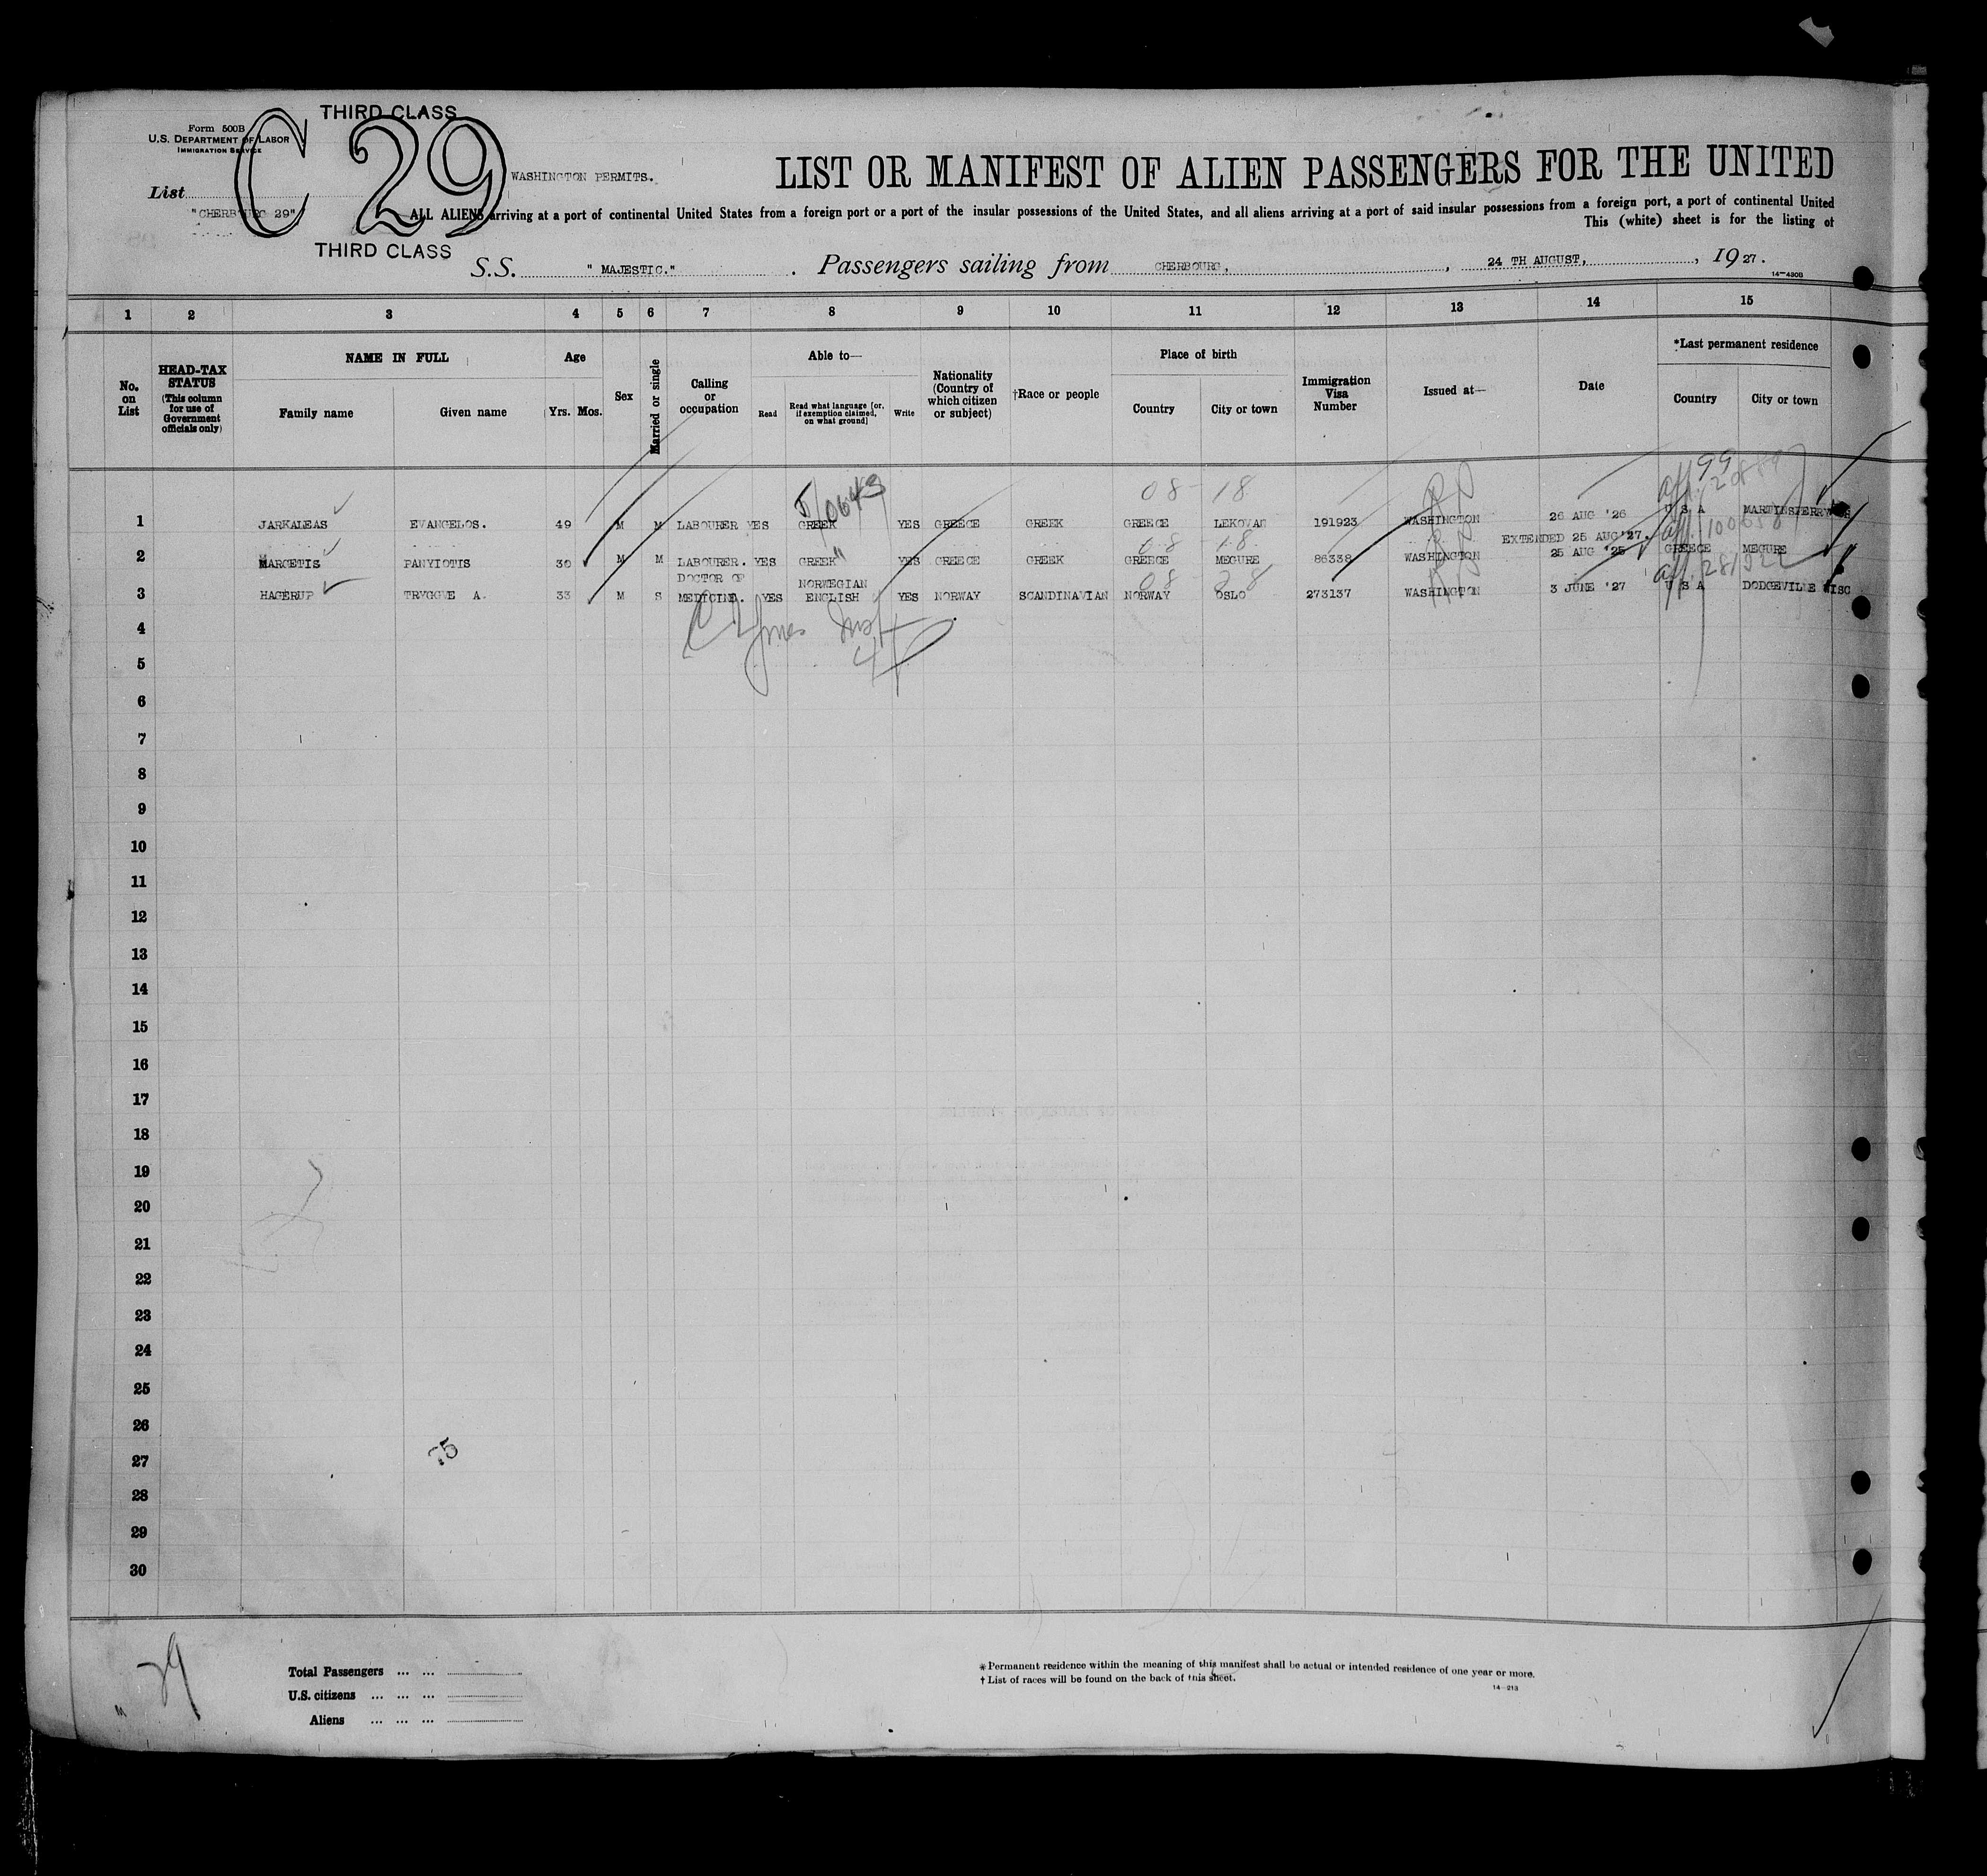 THIRD CLASS
Form 500B
U.S. DEPARTMENT OF LABOR
IMMIGRATION SERVICE
C 29
List
WASHINGTON PERMITS.
LIST OR MANIFEST OF ALIEN PASSENGERS FOR THE UNITED
"CHERBOURG 29"
ALL ALIENS arriving at a port of continental United States from a foreign port or a port of the insular possessions of the United States, and all aliens arriving at a port of said insular possessions from a foreign port, a port of continental United
This (white) sheet is for the listing of
THIRD CLASS
S.S. " MAJESTIC." . Passengers sailing from CHERBOURG, , 24 TH AUGUST, , 1927.
14—430B
1 2 3 4 5 6 7 8 9 10 11 12 13 14 15
No. on List
HEAD-TAX STATUS (This column for use of Government officials only)
NAME IN FULL
Family name Given name
Age
Yrs. Mos.
Sex
Married or single
Calling or occupation
Able to—
Read Read what language [or, if exemption claimed, on what ground] Write
Nationality (Country of which citizen or subject)
†Race or people
Place of birth
Country City or town
Immigration Visa Number
Issued at—
Date
*Last permanent residence
Country City or town
99
08 - 18
1 JARKALEAS EVANGELOS. 49 M M LABOURER YES GREEK YES GREECE GREEK GREECE 191923 WASHINGTON 26 AUG '26 U S A
EXTENDED 25 AUG '27.
08 - 18
2 MARGETIS PANYIOTIS 30 M M LABOURER. YES GREEK YES GREECE GREEK GREECE MEGURE 86338 WASHINGTON 25 AUG '25 GREECE MEGURE
08 - 28
3 HAGERUP TRYGGVE A. 33 M S DOCTOR OF MEDICINE. YES NORWEGIAN ENGLISH YES NORWAY SCANDINAVIAN NORWAY OSLO 273137 WASHINGTON 3 JUNE '27 U S A DODGEVILLE WISC
4
5
6
7
8
9
10
11
12
13
14
15
16
17
18
19
20
21
22
23
24
25
26
27
28
29
30
75
29
Total Passengers ... ...
U.S. citizens ... ... ...
Aliens ... ... ...
* Permanent residence within the meaning of this manifest shall be actual or intended residence of one year or more.
† List of races will be found on the back of this sheet.
14—213